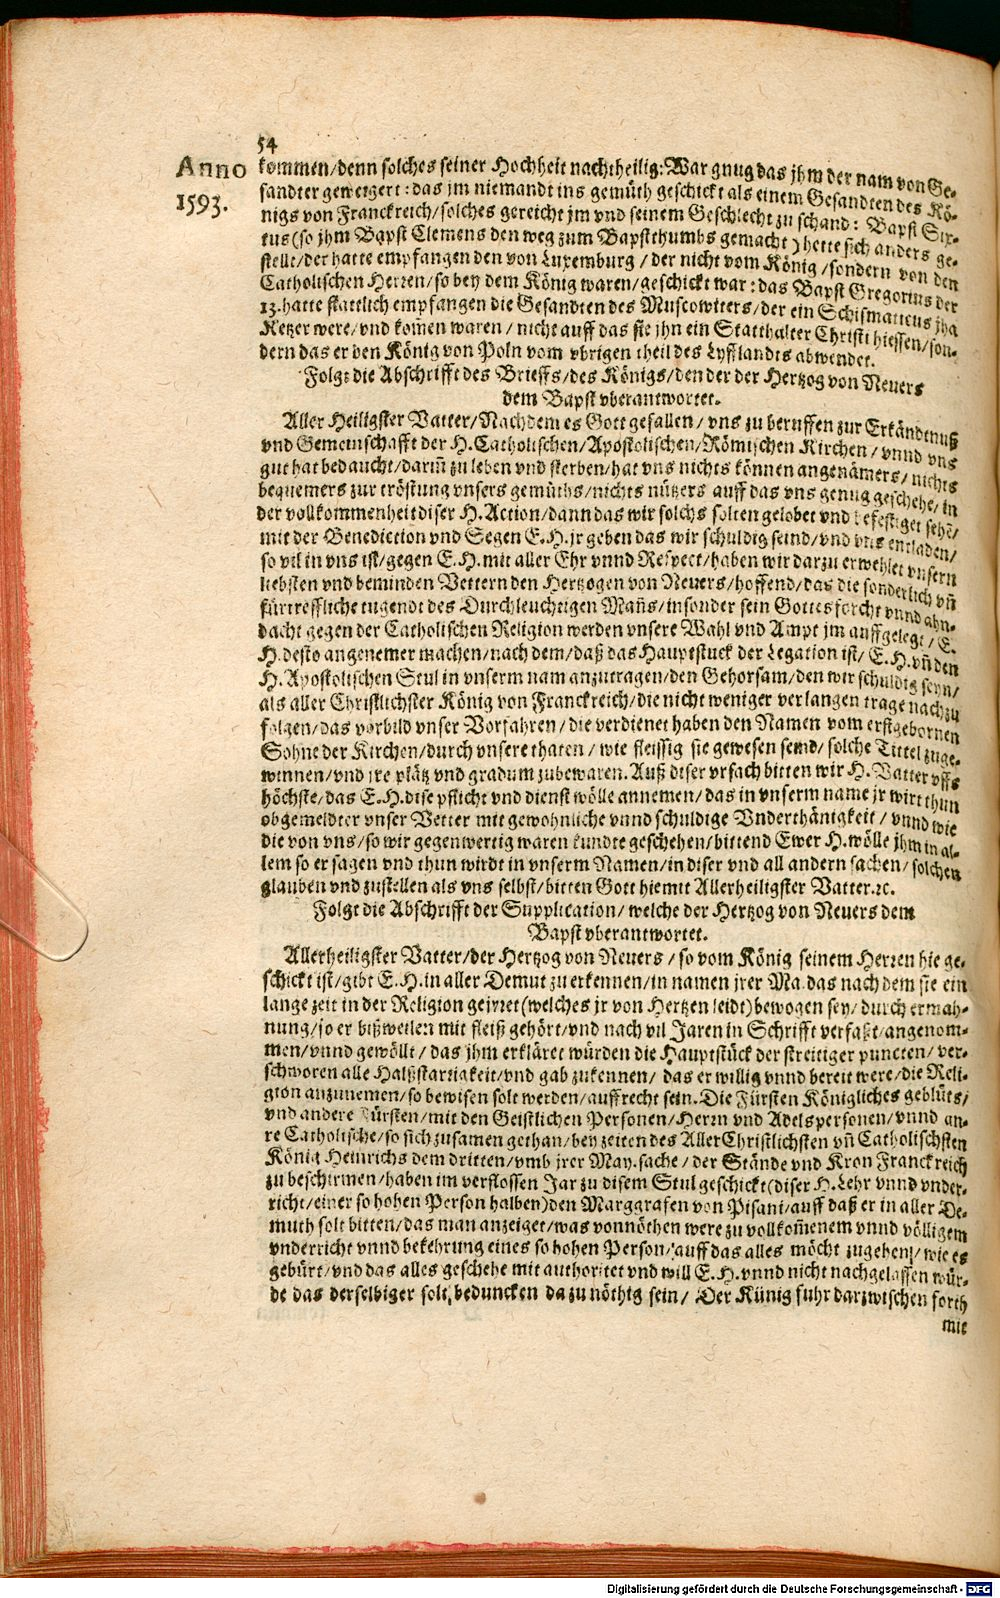 54
Anno
1593.
kommen/denn solches seiner Hochheit nachtheilig: War gnug das jhm der nam von Ge-
sandter geweigert: das jm niemandt ins gemüth geschickt als einem Gesandten des Kö-
nigs von Franckreich/solches gereicht jm vnd seinem Geschlecht zu schand: Bapst Six-
tus (so jhm Bapst Clemens den weg zum Bapstthumbs gemacht) hette sich anders ge-
stellt/der hatte empfangen den von Luxemburg/der nicht vom König/sondern von den
Catholischen Herren/so bey dem König waren/geschickt war: das Bapst Gregorius der
13. hatte stattlich empfangen die Gesandten des Muscowiters/der ein Schismaticus jha
Ketzer were/vnd kom̃en waren/nicht auff das sie jhn ein Statthalter Christi hiessen/son-
dern das er den König von Poln vom vbrigen theil des Lyfflandts abwendet.
Folgt die Abschrifft des Brieffs/des Königs/den der der Hertzog von Nevers
dem Bapst vberantwortet.
Aller Heiligster Vatter/Nachdem es Gott gefallen/vns zu beruffen zur Erkändtnuß
vnd Gemeinschafft der H. Catholischen/Apostolischen/Römischen Kirchen/vnnd vns
gut hat bedaucht/darin̄ zu leben vnd sterben/hat vns nichts können angenämers/nichts
bequemers zur tröstung vnsers gemüths/nichts nützers auff das vns genug geschehe/in
der vollkommenheit diser H. Action/dann das wir solchs solten gelobet vnd befestiget sehē/
mit der Benediction vnd Segen E. H. jr geben das wir schuldig seind/vnd vns entladen/
so vil in vns ist/gegen E. H. mit aller Ehr vnnd Respect/haben wir darzu erwehlet vnsern
liebsten vnd beminden Vettern den Hertzogen von Nevers/hoffend/das die sonderlich vn̄
fürtreffliche tugendt des Durchleuchtigen Man̄s/insonder sein Gottsforcht vnnd ahn-
dacht gegen der Catholischen Religion werden vnsere Wahl vnd Ampt jm auffgelegt/E.
H. desto angenemer machen/nach dem/daß das Hauptstuck der Legation ist/E. H. vn̄ den
H. Apostolischen Stul in vnserm nam anzutragen/den Gehorsam/den wir schuldig seyn/
als aller Christlichster König von Franckreich/die nicht weniger verlangen trage nach zu
folgen/das vorbild vnser Vorfahren/die verdienet haben den Namen vom erstgebornen
Sohne der Kirchen/durch vnsere thaten/wie fleissig sie gewesen seind/solche Tittel zuge-
winnen/vnd jre plätz vnd gradum zubewaren. Auß diser vrsach bitten wir H. Vatter vffs
höchste/das E. H. dise pflicht vnd dienst wölle annemen/das in vnserm name jr wirt thun
obgemeldter vnser Vetter mit gewohnliche vnnd schuldige Vnderthänigkeit/vnnd wie
die von vns/so wir gegenwertig waren kundte geschehen/bittend Ewer H. wölle jhm in al-
lem so er sagen vnd thun wirdt in vnserm Namen/in diser vnd all andern sachen/solchen
glauben vnd zustellen als vns selbst/bitten Gott hiemit Allerheiligster Vatter. ꝛc.
Folgt die Abschrifft der Supplication/welche der Hertzog von Nevers dem
Bapst vberantwortet.
Allerheiligster Vatter/der Hertzog von Nevers/so vom König seinem Herren hie ge-
schickt ist/gibt E. H. in aller Demut zu erkennen/in namen jrer Ma. das nach dem sie ein
lange zeit in der Religion geirret (welches jr von Hertzen leidt) bewogen sey/durch ermah-
nung/so er bißweilen mit fleiß gehört/vnd nach vil Jaren in Schrifft verfaßt/angenom-
men/vnnd gewöllt/das jhm erkläret würden die Hauptstück der streitiger puncten/ver-
schworen alle Halßstarrigkeit/vnd gab zukennen/das er willig vnnd bereit were/die Reli-
gion anzunemen/so bewisen solt werden/auffrecht sein. Die Fürsten Königliches geblüts/
vnd andere Fürsten/mit den Geistlichen Personen/Herrn vnd Adelspersonen/vnnd an-
re Catholische/so sich zusamen gethan/bey zeiten des AllerChristlichsten vn̄ Catholischsten
König Heinrichs dem dritten/vmb jrer May. sache/der Stände vnd Kron Franckreich
zu beschirmen/haben im verflossen Jar zu disem Stul geschickt (diser H. Lehr vnnd vnder-
richt/einer so hohen Person halben) den Marggrafen von Pisani/auff daß er in aller De-
muth solt bitten/das man anzeiget/was vonnöthen were zu vollkom̃enem vnnd völligem
vnderricht vnnd bekehrung eines so hohen Person/auff das alles möcht zugehen/wie es
gebürt/vnd das alles geschehe mit authoritet vnd will E. H. vnnd nicht nachgelassen wür-
de das derselbiger solt beduncken da zu nöthig sein/Der Künig fuhr darzwischen forth
mit
Digitalisierung gefördert durch die Deutsche Forschungsgemeinschaft - DFG